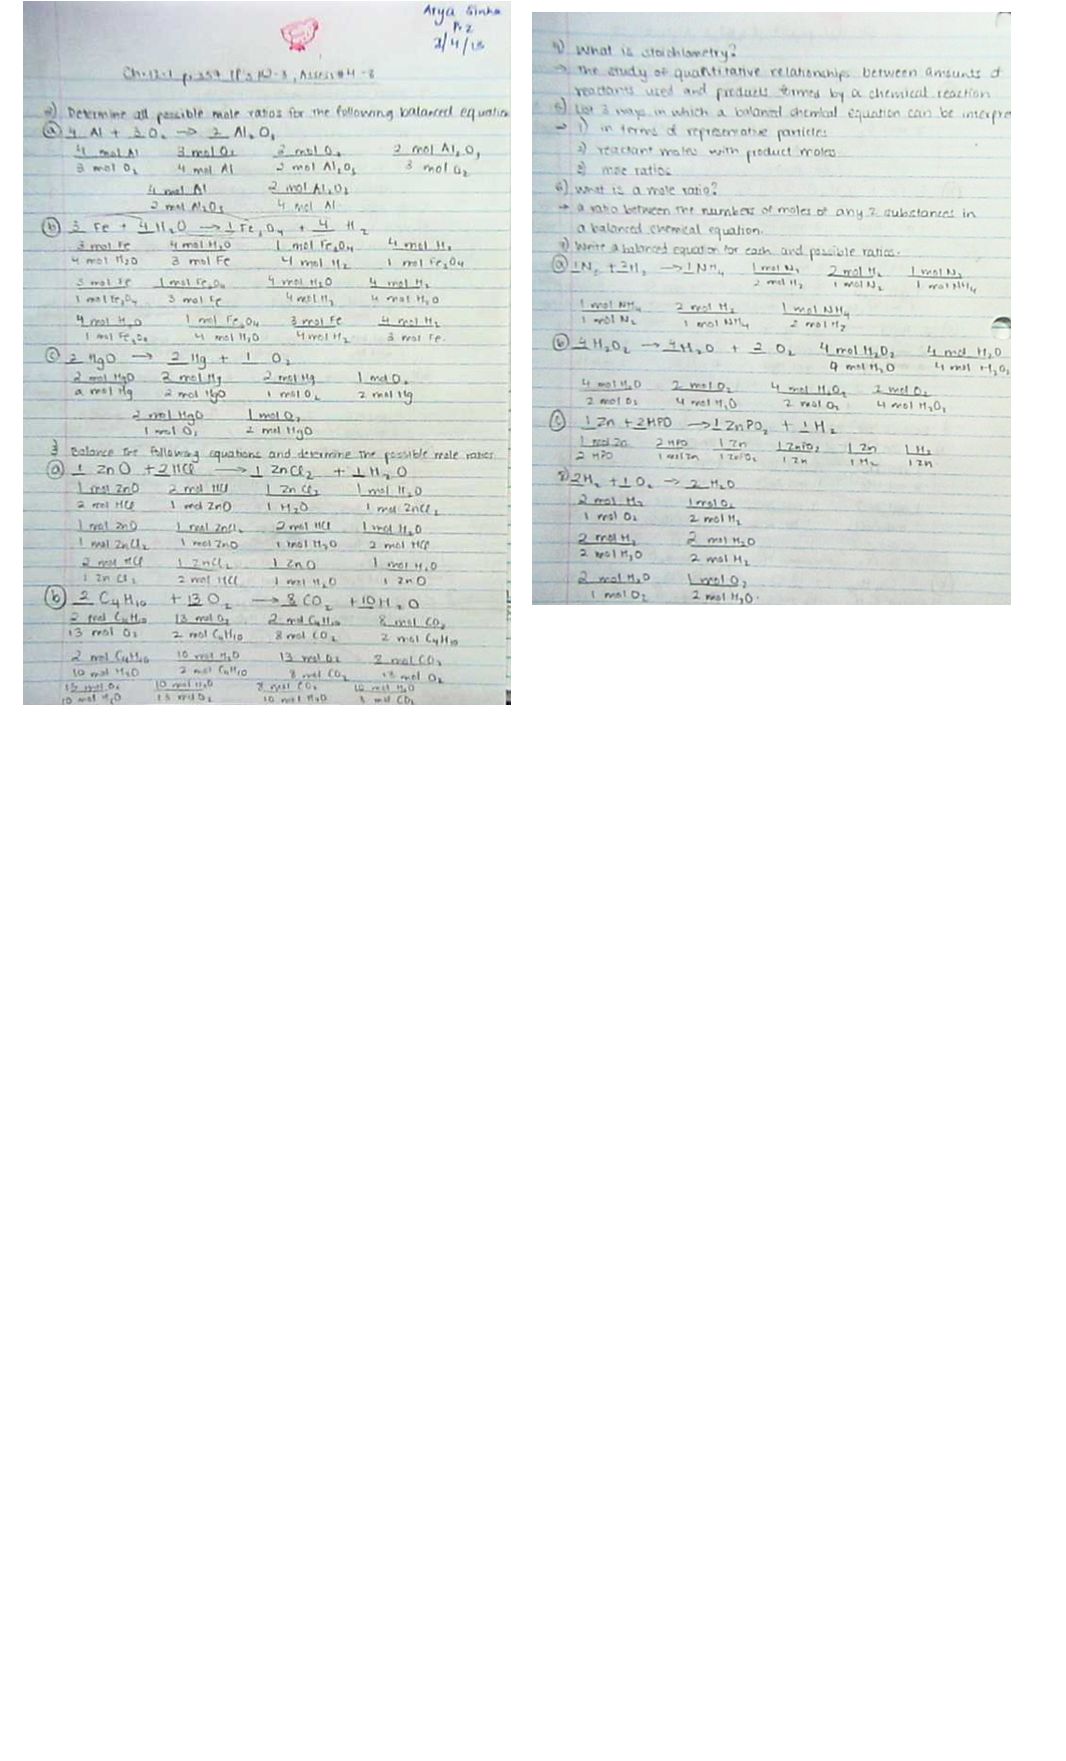 Arya Sinha
Pr. 2
2/4/13
Ch. 12.1 p. 357
2) Determine all possible mole ratios for the following balanced equation
(a) 4 Al + 3 O₂ → 2 Al₂O₃
4 mol Al 3 mol O₂ 3 mol O₂ 2 mol Al₂O₃
3 mol O₂ 4 mol Al 2 mol Al₂O₃ 3 mol O₂
4 mol Al 2 mol Al₂O₃
2 mol Al₂O₃ 4 mol Al
(b) 3 Fe + 4 H₂O → 1 Fe₃O₄ + 4 H₂
3 mol Fe 4 mol H₂O 1 mol Fe₃O₄ 4 mol H₂
4 mol H₂O 3 mol Fe 4 mol H₂ 1 mol Fe₃O₄
3 mol Fe 1 mol Fe₃O₄ 4 mol H₂O 4 mol H₂
1 mol Fe₃O₄ 3 mol Fe 4 mol H₂ 4 mol H₂O
4 mol H₂O 1 mol Fe₃O₄ 3 mol Fe 4 mol H₂
1 mol Fe₃O₄ 4 mol H₂O 4 mol H₂ 3 mol Fe
(c) 2 HgO → 2 Hg + 1 O₂
2 mol HgO 2 mol Hg 2 mol Hg 1 mol O₂
2 mol Hg 2 mol HgO 1 mol O₂ 2 mol Hg
2 mol HgO 1 mol O₂
1 mol O₂ 2 mol HgO
3 Balance the following equations and determine the possible mole ratios
(a) 1 ZnO + 2 HCl → 1 ZnCl₂ + 1 H₂O
1 mol ZnO 2 mol HCl 1 ZnCl₂ 1 mol H₂O
2 mol HCl 1 mol ZnO 1 H₂O 1 mol ZnCl₂
1 mol ZnO 1 mol ZnCl₂ 2 mol HCl 1 mol H₂O
1 mol ZnCl₂ 1 mol ZnO 1 mol H₂O 2 mol HCl
2 mol HCl 1 ZnCl₂ 1 ZnO 1 mol H₂O
1 ZnCl₂ 2 mol HCl 1 mol H₂O 1 ZnO
(b) 2 C₄H₁₀ + 13 O₂ → 8 CO₂ + 10 H₂O
2 mol C₄H₁₀ 13 mol O₂ 2 mol C₄H₁₀ 8 mol CO₂
13 mol O₂ 2 mol C₄H₁₀ 8 mol CO₂ 2 mol C₄H₁₀
2 mol C₄H₁₀ 10 mol H₂O 13 mol O₂ 8 mol CO₂
10 mol H₂O 2 mol C₄H₁₀ 8 mol CO₂ 13 mol O₂
13 mol O₂ 10 mol H₂O 8 mol CO₂ 10 mol H₂O
10 mol H₂O 13 mol O₂ 10 mol H₂O 8 mol CO₂
4) What is stoichiometry?
→ the study of quantitative relationships between amounts of
reactants used and products formed by a chemical reaction
5) List 3 ways in which a balanced chemical equation can be interpre
→ 1) in terms of representative particles
2) reactant moles with product moles
3) mole ratios
6) What is a mole ratio?
→ a ratio between the numbers of moles of any 2 substances in
a balanced chemical equation.
7) Write a balanced equation for each and possible ratios.
(a) 1N₂ + 2H₂ → 1NH₄ 1 mol N₂ 2 mol H₂ 1 mol N₂
2 mol H₂ 1 mol N₂ 1 mol NH₄
1 mol NH₄ 2 mol H₂ 1 mol NH₄
1 mol N₂ 1 mol NH₄ 2 mol H₂
(b) 4 H₂O₂ → 4 H₂O + 2 O₂ 4 mol H₂O₂ 4 mol H₂O
4 mol H₂O 4 mol H₂O₂
4 mol H₂O 2 mol O₂ 4 mol H₂O₂ 2 mol O₂
2 mol O₂ 4 mol H₂O 2 mol O₂ 4 mol H₂O₂
(c) 1 Zn + 2HPO → 1 ZnPO₂ + 1 H₂
1 mol Zn 2 HPO 1 Zn 1 ZnPO₂ 1 Zn 1 H₂
2 HPO 1 mol Zn 1 ZnPO₂ 1 Zn 1 H₂ 1 Zn
8) 2H₂ + 1 O₂ → 2 H₂O
2 mol H₂ 1 mol O₂
1 mol O₂ 2 mol H₂
2 mol H₂ 2 mol H₂O
2 mol H₂O 2 mol H₂
2 mol H₂O 1 mol O₂
1 mol O₂ 2 mol H₂O.